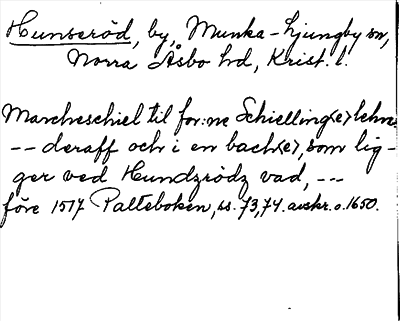 Hunseröd, by, Munka-Ljungby sn,
Norra Åsbo hd, Krist. l.
Marcheschiel til for:ne Schielling<e> lehn
-- deraff och i en bach<e>, som lig-
ger ved Hundzrödz vad, --
före 1517 Palteboken, ss. 73,74. avskr. o. 1650.